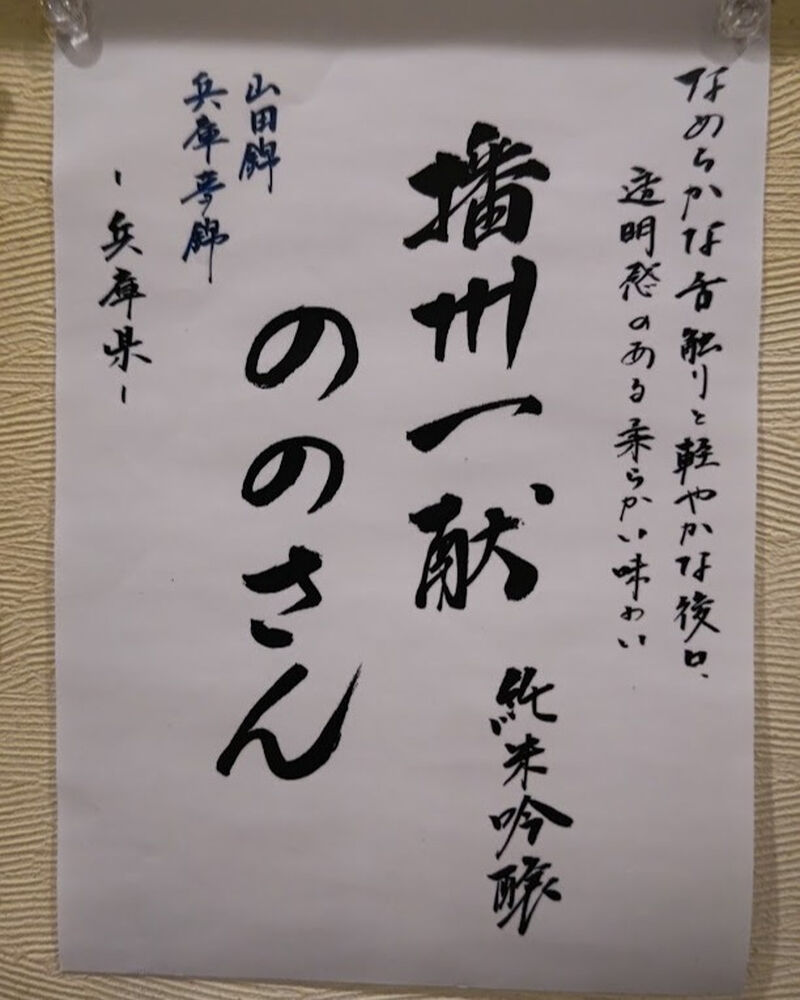 なめらかな舌触りと軽やかな後口、
透明感のある柔らかい味わい
播州一献
純米吟醸
ののさん
山田錦
兵庫夢錦
-兵庫県-